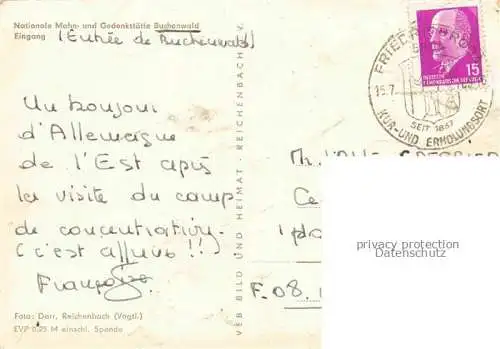 Nationale Mahn- und Gedenkstätte Buchenwald
Eingang
(Entrée de Buchenwald)
Un bonjour
d'Allemagne
de l'Est après
la visite du camp
de concentration.
(c'est affreux !!)
Françoise
Foto: Darr, Reichenbach (Vogtl.)
EVP 0,25 M einschl. Spende
VEB BILD UND HEIMAT · REICHENBACH i. V.
15
FRIEDRICHRODA
15.7.
SEIT 1837
KUR- UND ERHOLUNGSORT
F. 08.
privacy protection
Datenschutz